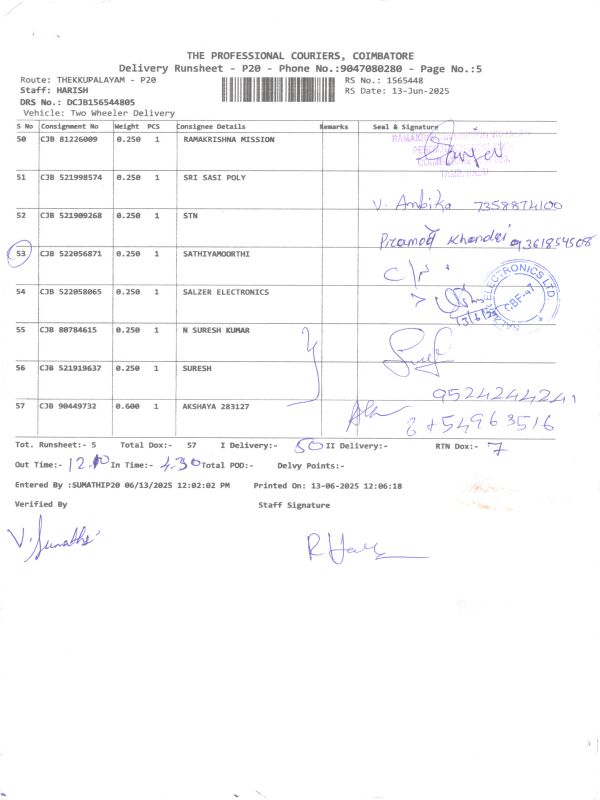 THE PROFESSIONAL COURIERS, COIMBATORE
Delivery Runsheet - P20 - Phone No.:9047080280 - Page No.:5
Route: THEKKUPALAYAM - P20 RS No.: 1565448
Staff: HARISH RS Date: 13-Jun-2025
DRS No.: DCJB156544805
Vehicle: Two Wheeler Delivery
S No Consignment No Weight PCS Consignee Details Remarks Seal & Signature
50 CJB 81226009 0.250 1 RAMAKRISHNA MISSION
51 CJB 521998574 0.250 1 SRI SASI POLY
V. Ambika 7358874100
52 CJB 521909268 0.250 1 STN
Pramod Khandei 9361854508
53 CJB 522056871 0.250 1 SATHIYAMOORTHI
54 CJB 522058065 0.250 1 SALZER ELECTRONICS
SALZER ELECTRONICS LTD.
CBF-47
13/6/25
55 CJB 80784615 0.250 1 N SURESH KUMAR
56 CJB 521919637 0.250 1 SURESH
9524244241
57 CJB 90449732 0.600 1 AKSHAYA 283127
8754963516
Tot. Runsheet:- 5 Total Dox:- 57 I Delivery:- 50 II Delivery:- RTN Dox:- 7
Out Time:- 12.10 In Time:- 4.30 Total POD:- Delvy Points:-
Entered By :SUMATHIP20 06/13/2025 12:02:02 PM Printed On: 13-06-2025 12:06:18
Verified By Staff Signature
V. Sumathi